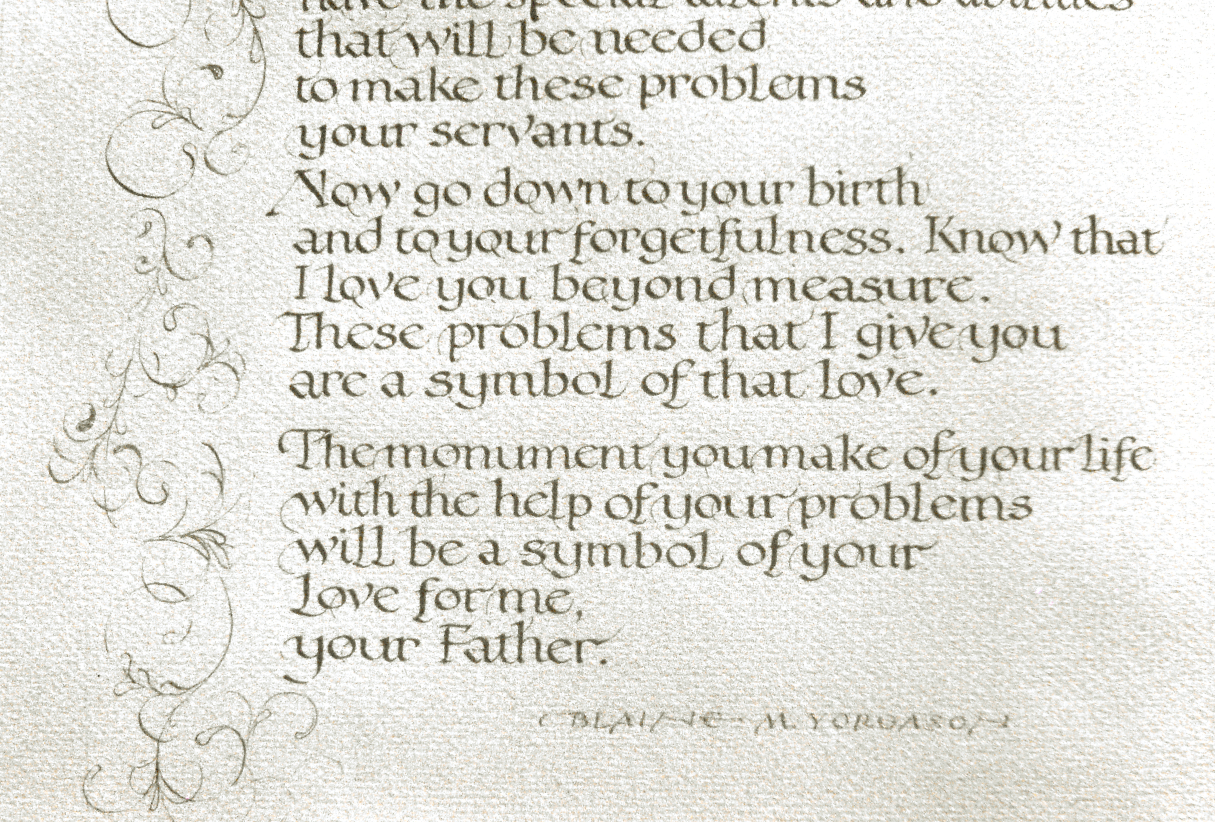 have the special talents and abilities
that will be needed
to make these problems
your servants.
Now go down to your birth
and to your forgetfulness. Know that
I love you beyond measure.
These problems that I give you
are a symbol of that love.
The monument you make of your life
with the help of your problems
will be a symbol of your
love for me,
your Father.
BLAINE M. YORGASON